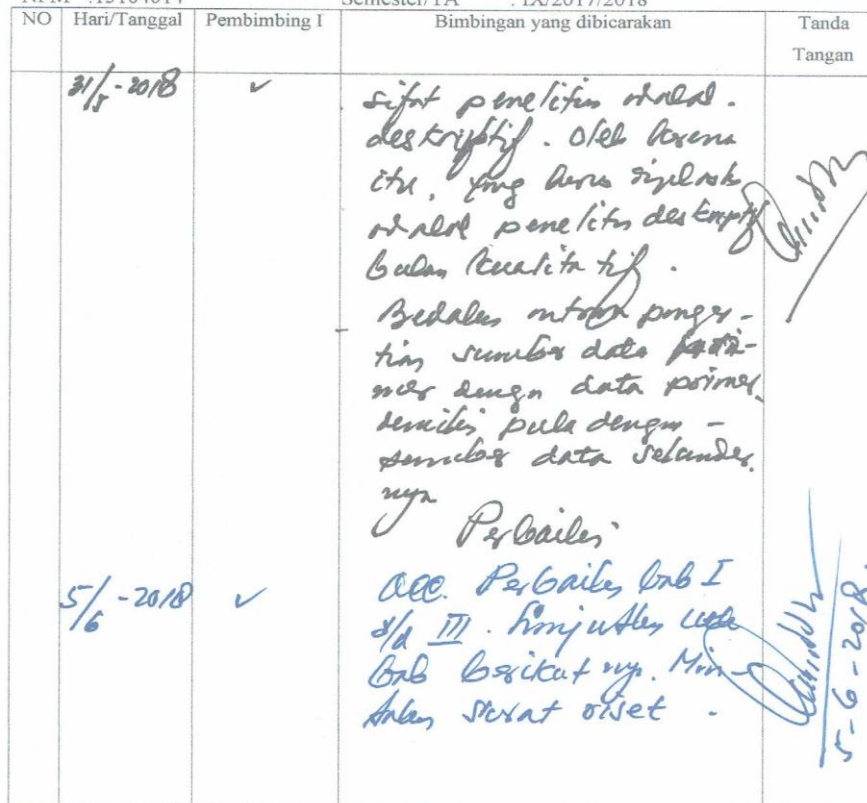 NPM : 13104014 Semester/TA : IX/2017/2018
NO Hari/Tanggal Pembimbing I Bimbingan yang dibicarakan Tanda Tangan
31/5-2018 ✓ sifat penelitian adalah
deskriptif. Oleh karena
itu, yang harus dijelaskan
adalah penelitian deskriptif
bukan kualitatif.
Bedakan antara penger-
tian sumber data pri-
mer dengan data primer.
demikian pula dengan -
sumber data sekunder
nya
Perbaiki
5/6-2018 ✓ acc. Perbaikan bab I
s/d III. Lanjutkan
bab berikutnya. Min-
takan surat riset.
5-6-2018.